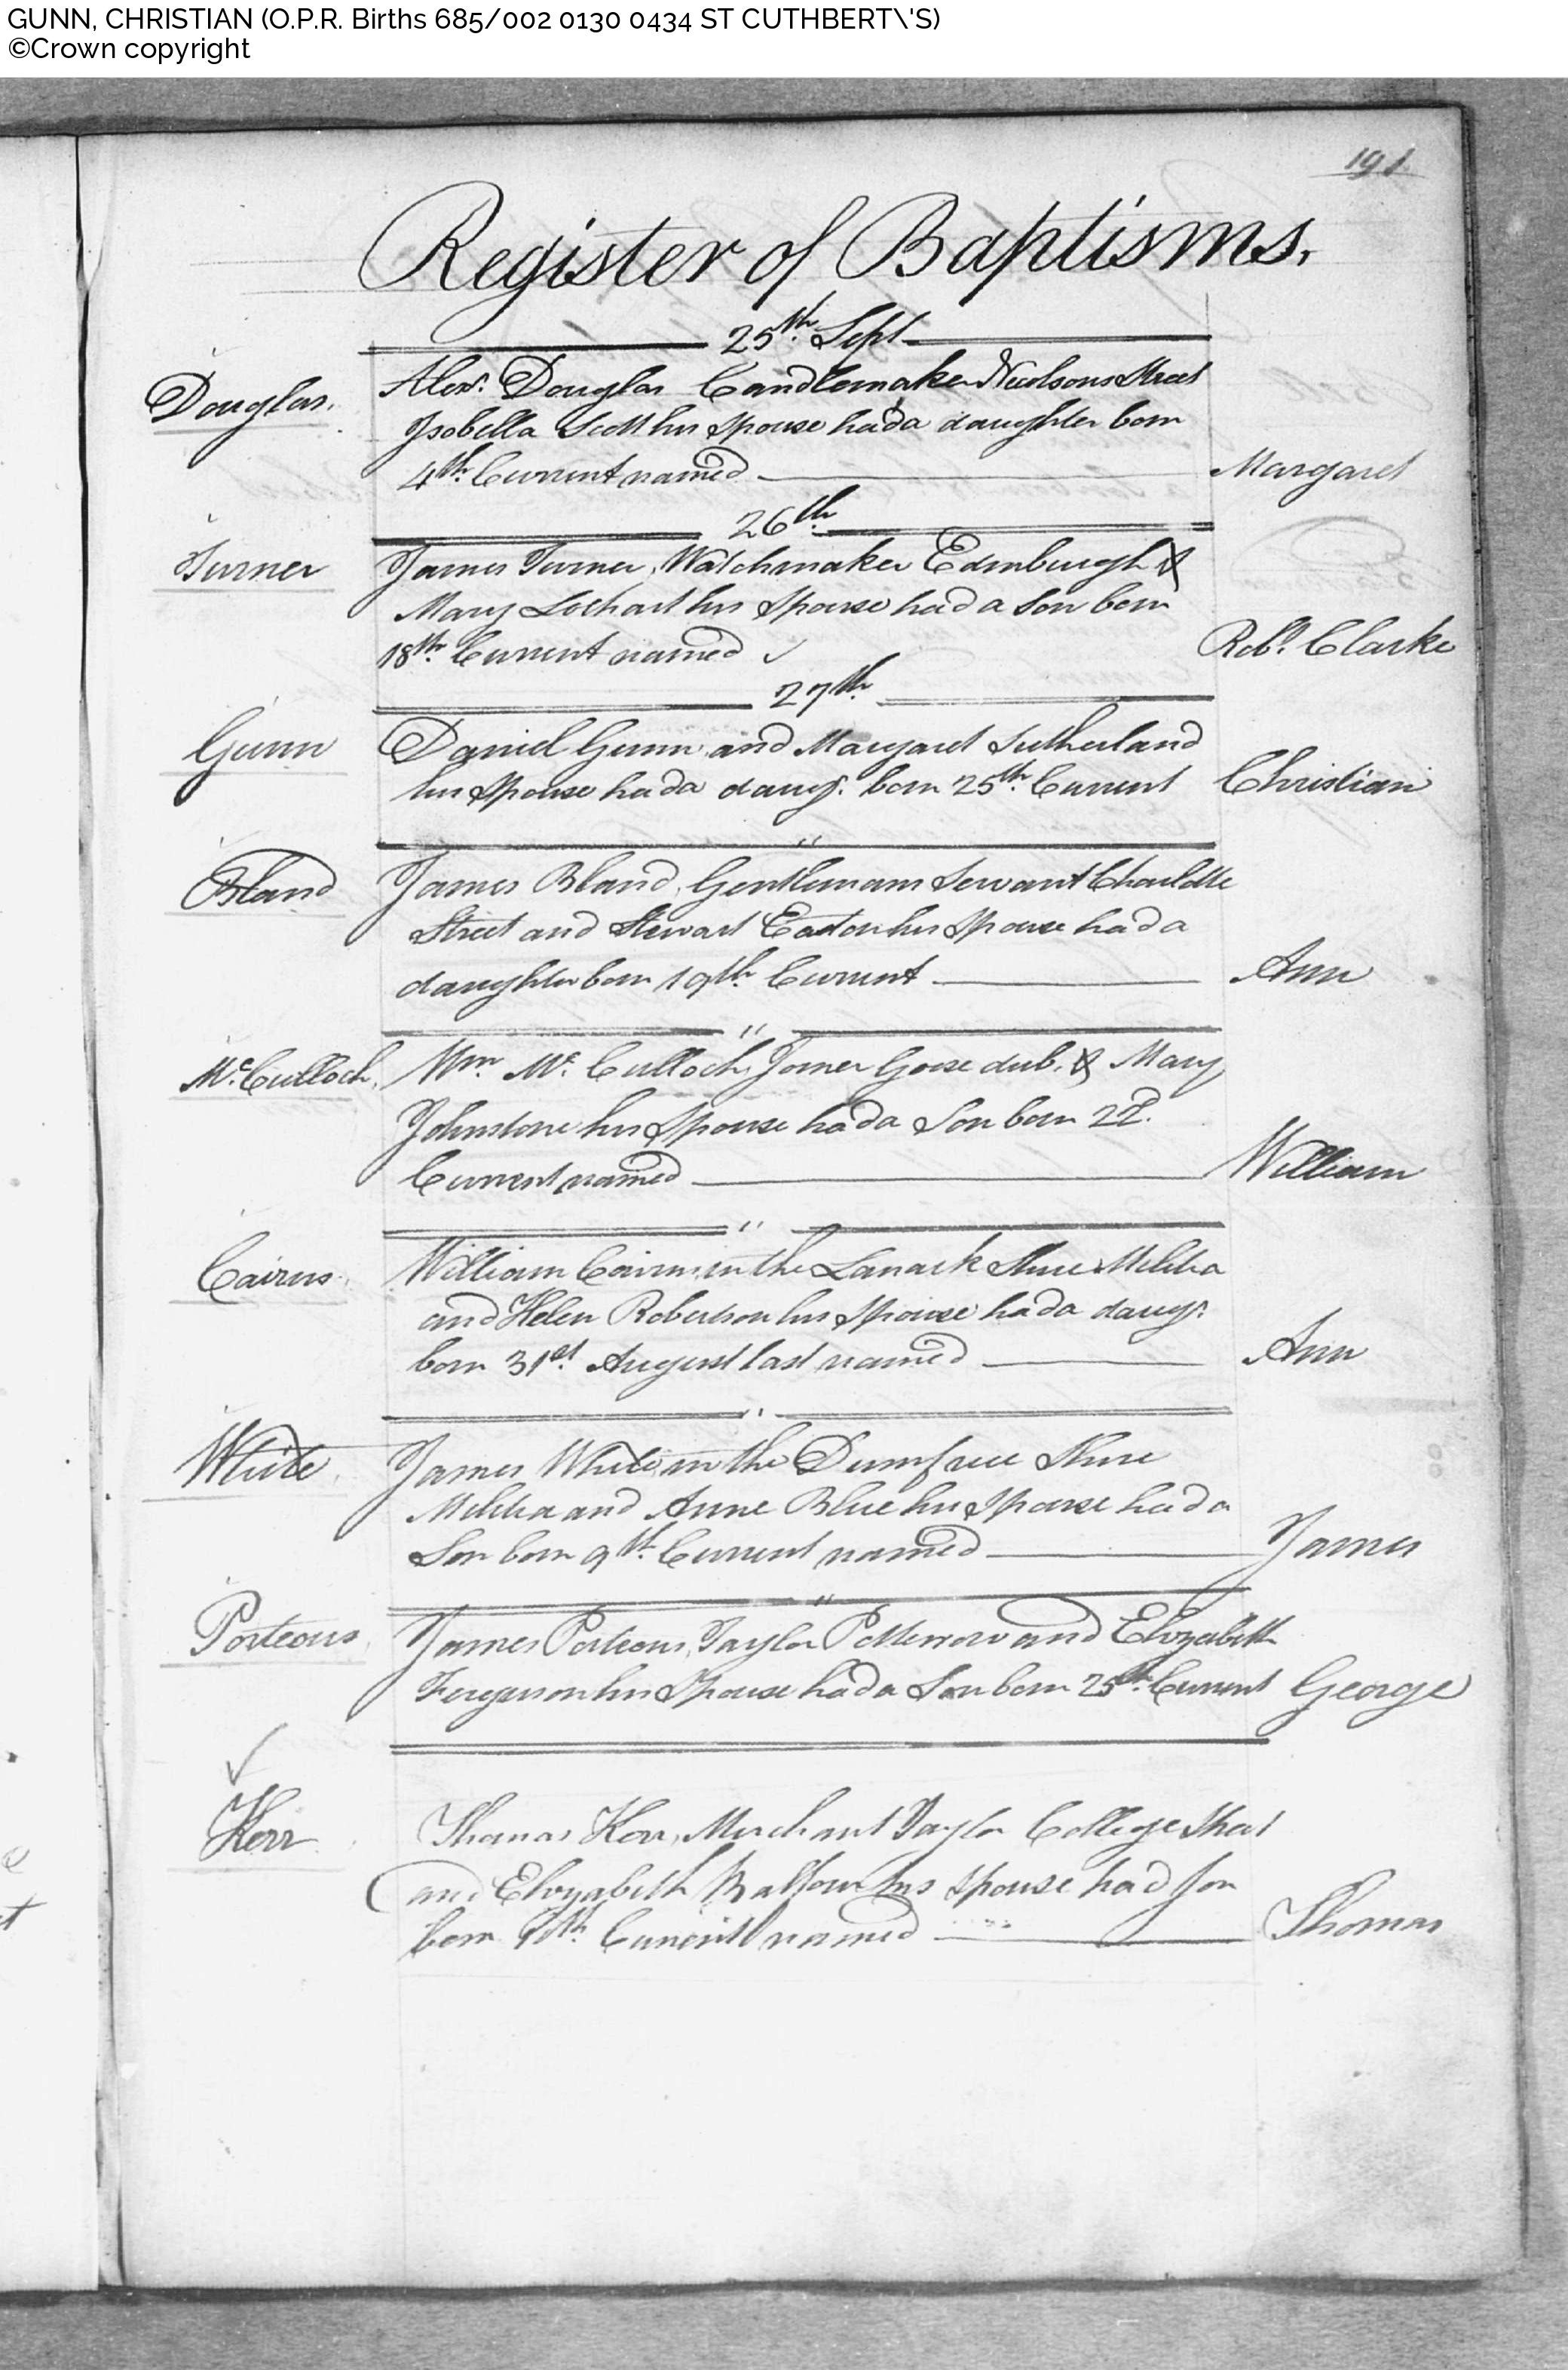 GUNN, CHRISTIAN (O.P.R. Births 685/002 0130 0434 ST CUTHBERT\'S)
©Crown copyright
191
Register of Baptisms.
25th. Sept
Douglas. Alexr. Douglas Candlemaker Nicolsons Street
Isobella Scott his Spouse had a daughter born
4th. Current named Margaret
26th.
Turner James Turner, Watchmaker Edinburgh &
Mary Lochart his Spouse had a Son born
18th. Current named Robt. Clarke
27th.
Gunn Daniel Gunn and Margaret Sutherland
his Spouse had a daugr. born 25th. Current Christian
"
Bland James Bland, Gentlemans Servant
Street and Stewart Easton his Spouse had a
daughter born 19th. Current Ann
"
Mc.Culloch, Wm. Mc. Culloch, Joiner Goose dub, & Mary
Johnstone his Spouse had a Son born 22d.
Current named William
"
Cairns William Cairns, in the Lanark Shire Militia
and Helen Robertson his Spouse had a daugr.
born 31st. August last named Ann
"
White James White in the Dumfries Shire
Militia and Anne Blue his Spouse had a
Son born 9th. Current named James
"
Porteous James Porteous, Taylor Potterrow and Elizabeth
Ferguson his Spouse had a Son born 25th. Current George
Kerr Thomas Kerr, Merchant Taylor College Street
and Elizabeth Balfour his Spouse had Son
born Current named Thomas